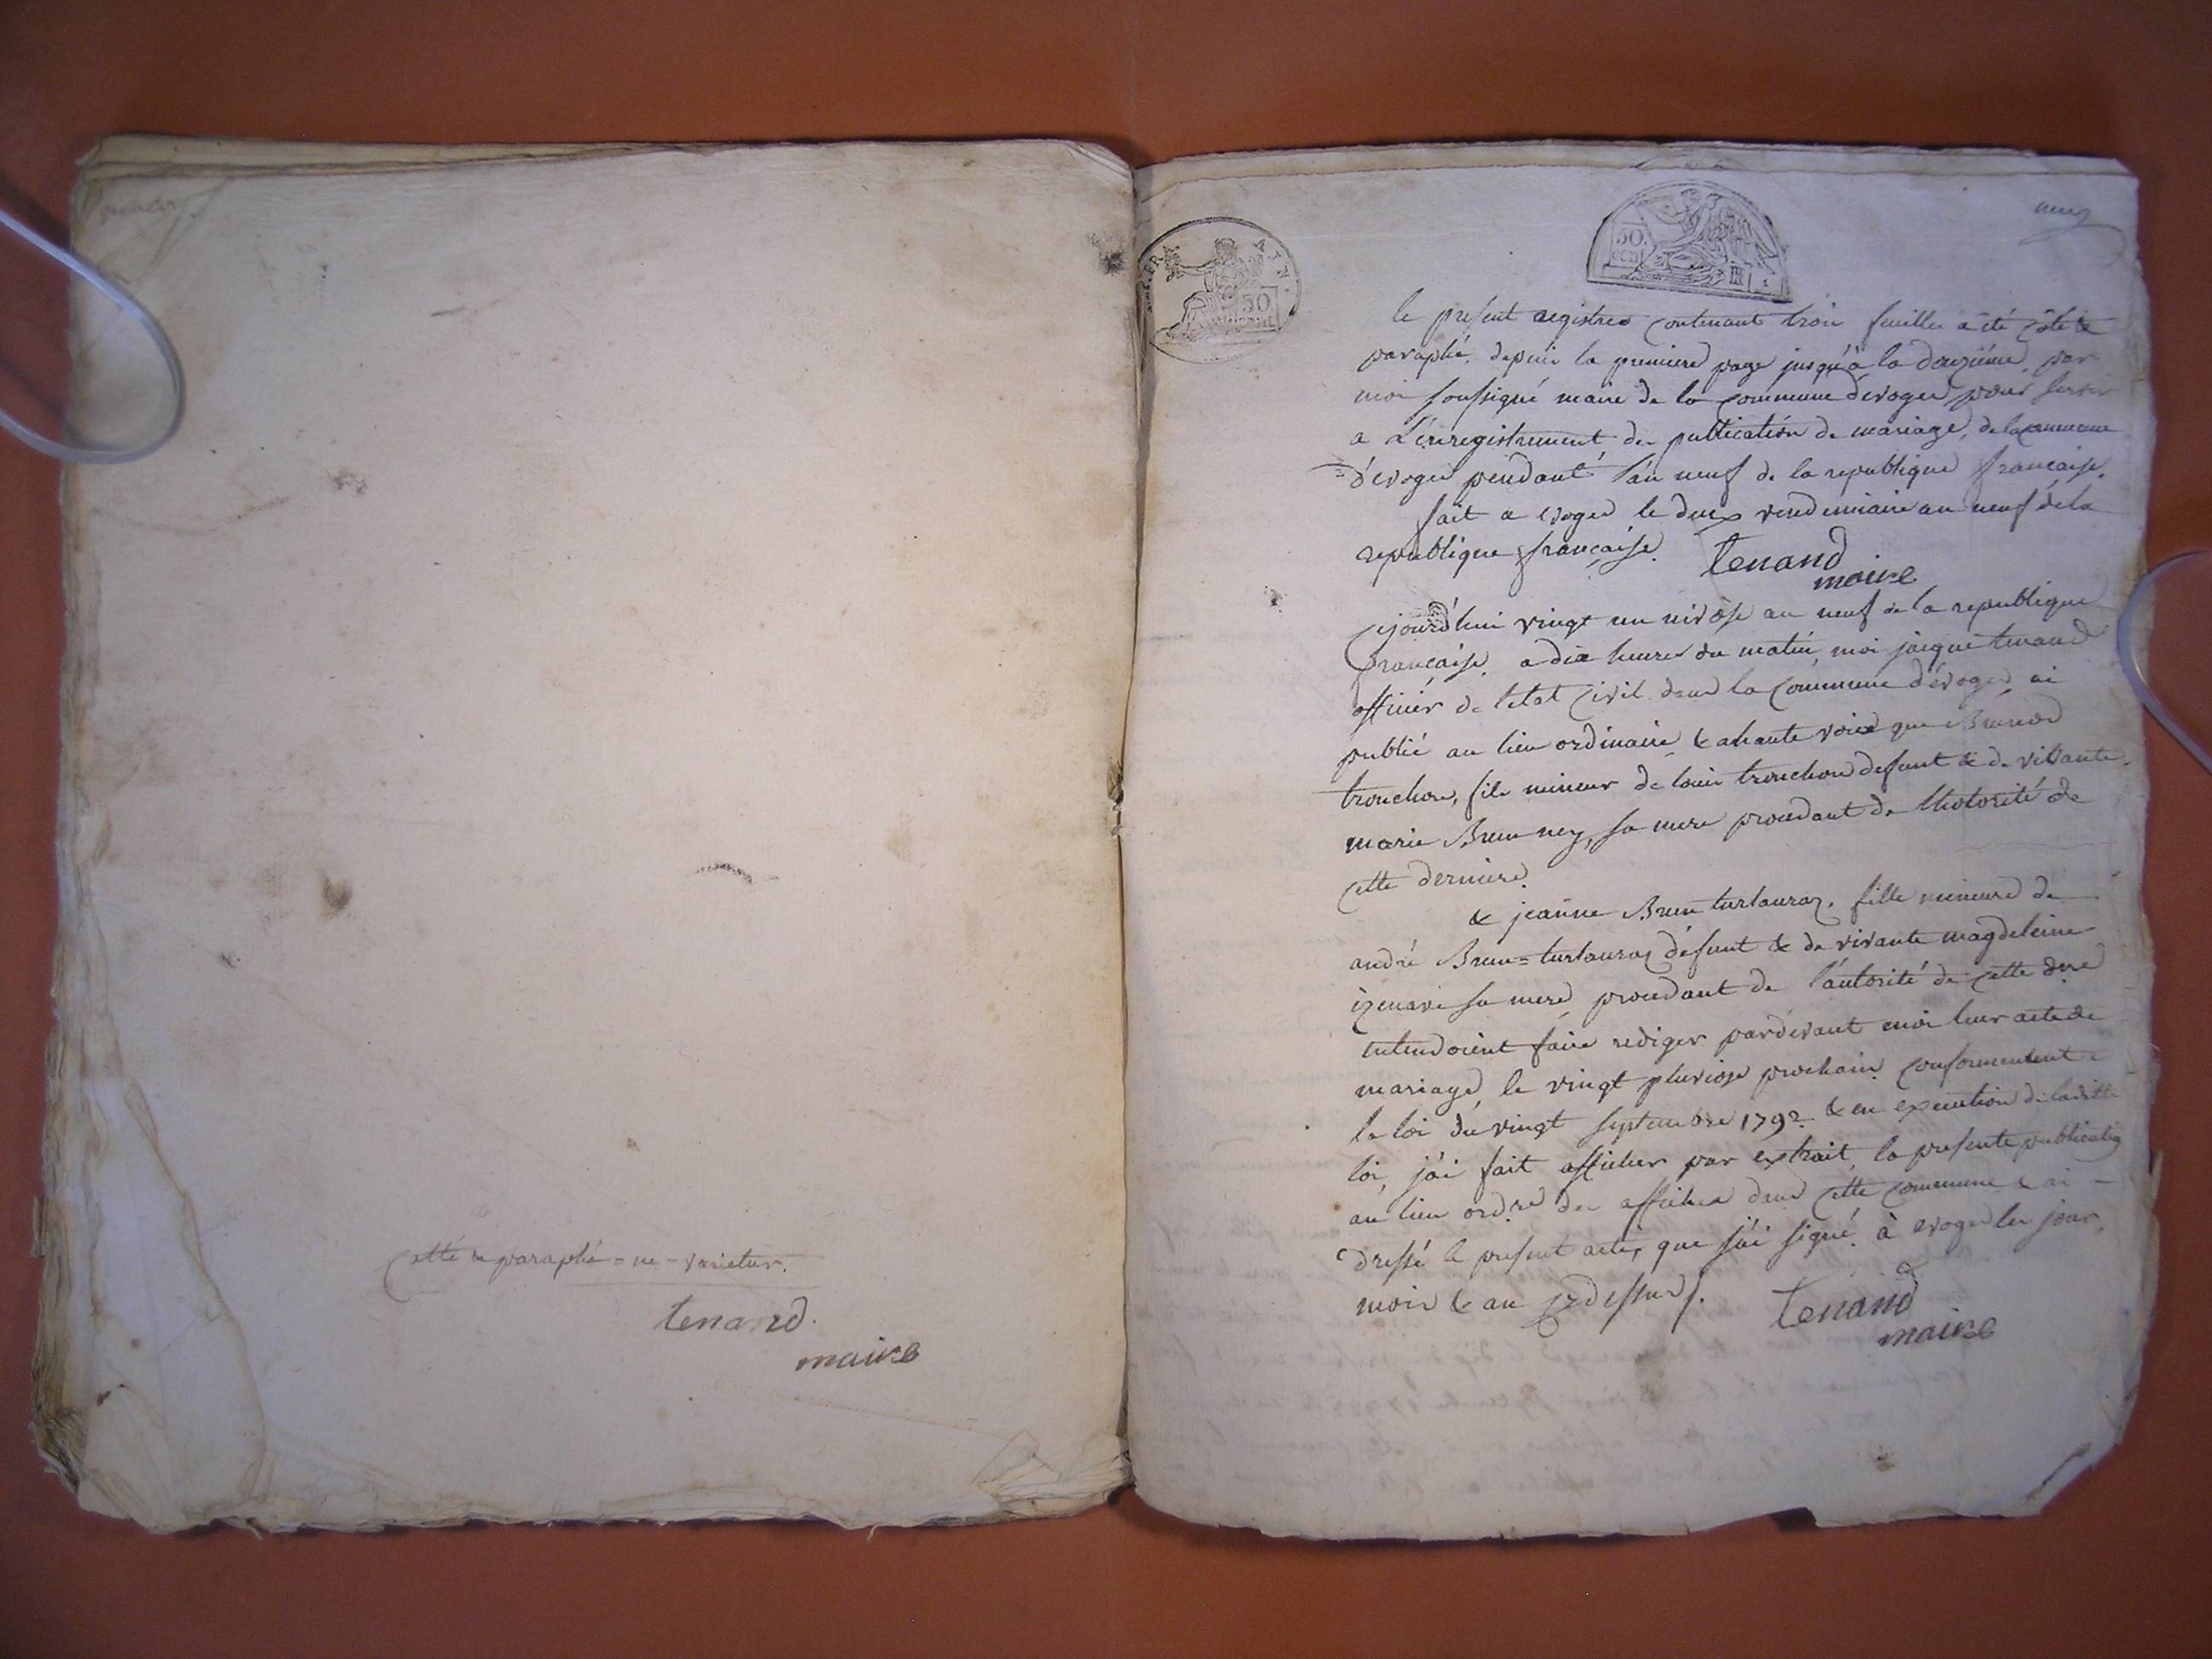 Cotté & paraphé = ne - varietur.
tenand.
maire
50
le present registres Contenant trois feuilles a été Côté &
paraphé, depuis la premiere page jusqu'à la douziéme, par
moi soussigné maire de la Commune d'evoges pour servir
a L'enregistrement des publication de mariage, de la commune
d'évoges pendant l'an neuf de la republique française.
fait a evoges le deux vendemiaire an neuf de la
republique française. tenand
maire
Cejourd'hui vingt un nivôse an neuf de la republique
française, a dix heures du matin, moi jacque tenand
officier de l'etat Civil dans la Commune d'évoges, ai
publié au lieu ordinaire & a haute voix que
trouchon, fils mineur de louis trouchon defunt & de vivante
marie Brun ney, sa mere procedant de l'hotorité de
cette derniere.
& jeanne Brun turlauraz, fille mineure de
andré Brun = turlauraz défunt & de vivante magdeleine
izenave sa mere, procedant de l'autorité de cette dere
entendoient faire rediger pardevant moi leur acte de
mariage, le vingt pluviose prochain conformement a
la loi du vingt septembre 1792. & en execution de laditte
loi, j'ai fait afficher par extrait, la presente publication
au lieu ordre des affiches dans cette Commune & ai -
dressé le present acte, que j'ai signé. à evoges les jour,
mois & an que dessus.
tenand
maire